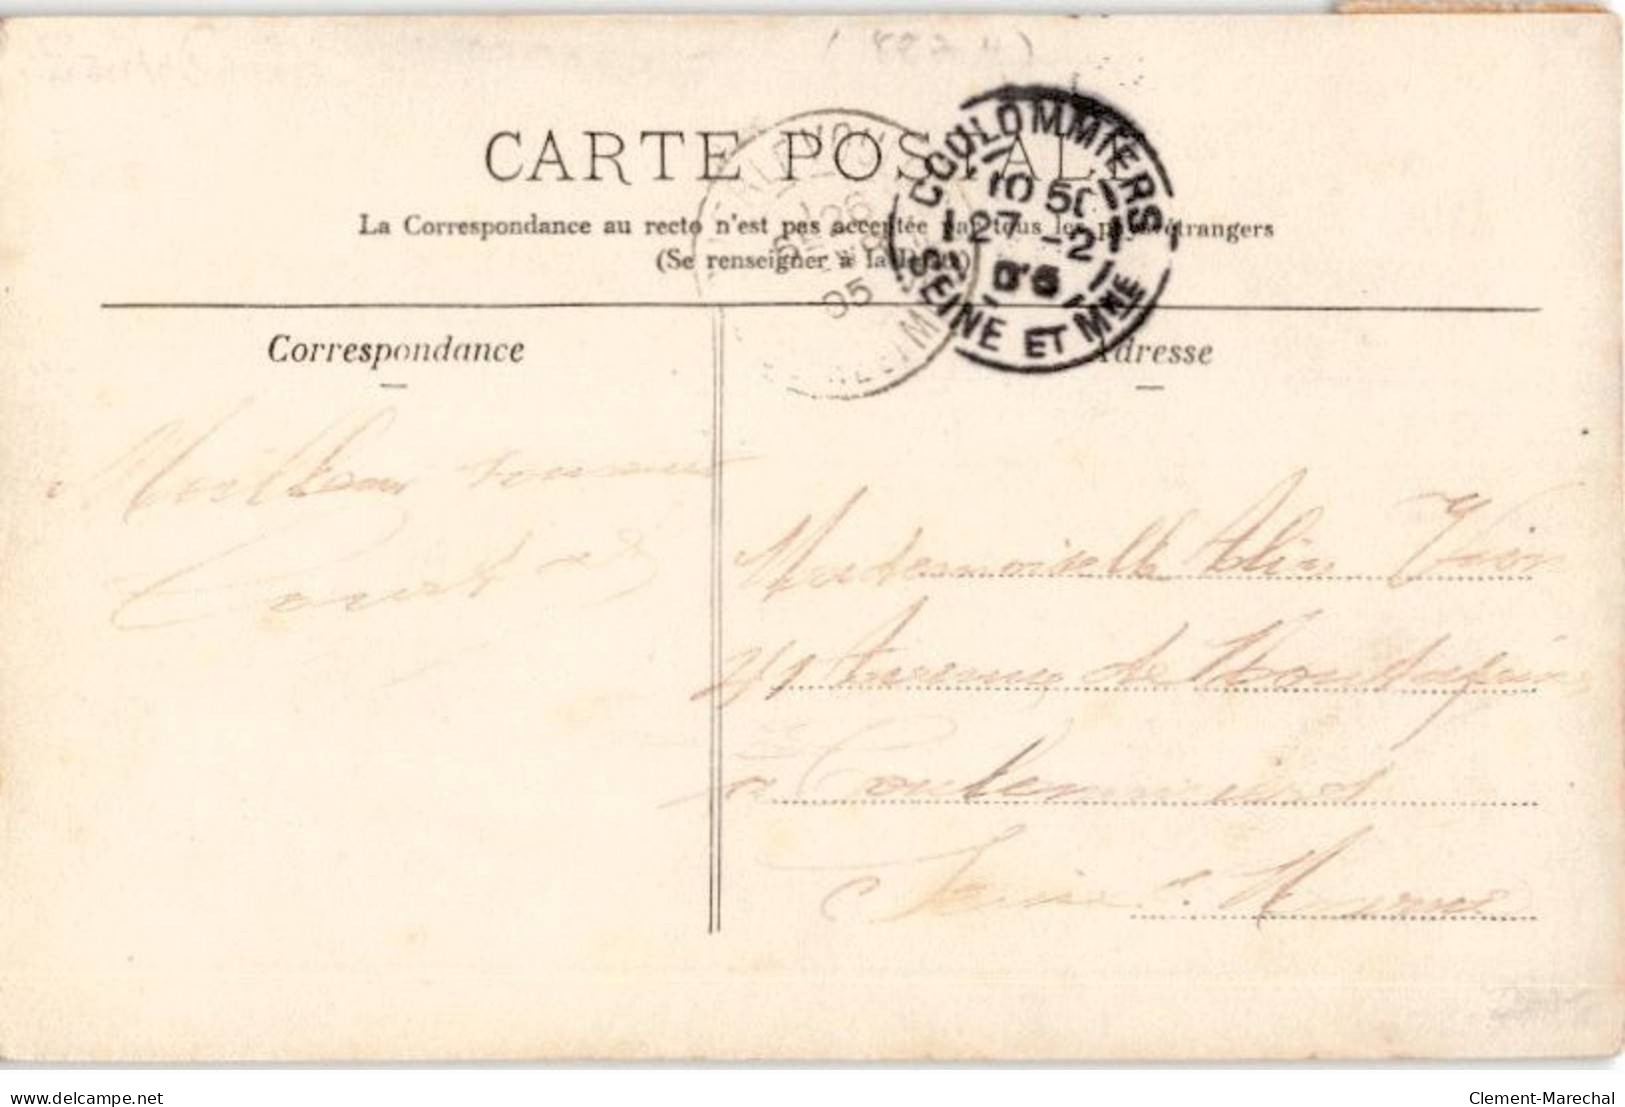 CARTE POSTALE
La Correspondance au recto n'est pas acceptée par tous les pays étrangers
(Se renseigner à la Poste)
COULOMMIERS
10 50
27 -2
05
SEINE ET MNE
26
05
Correspondance
Adresse
Meilleur souvenir
Mademoiselle Aline
21 Avenue de
à Coulommiers
Seine et Marne
delcampe.net
Clement-Marechal